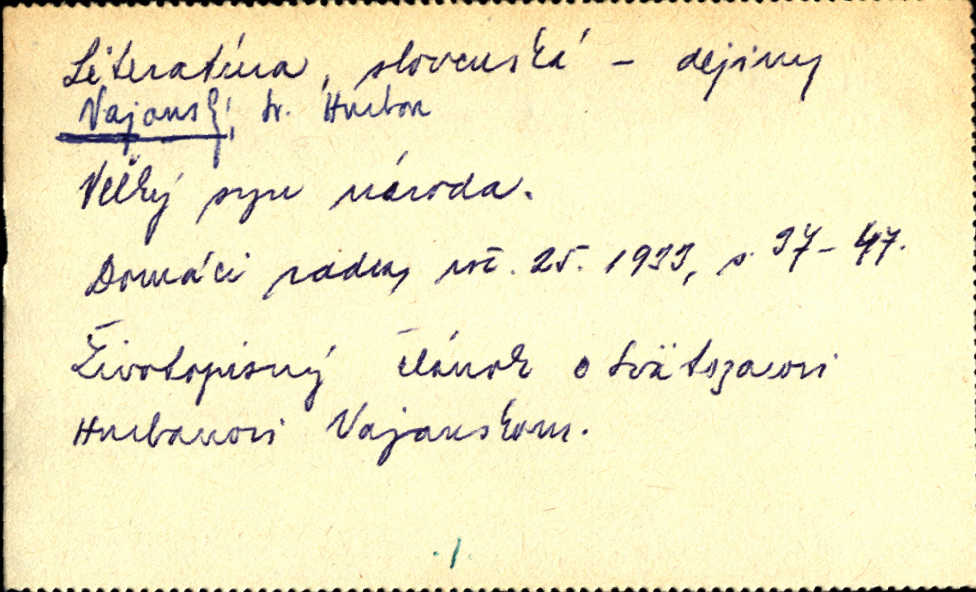 Literatúra, slovenská – dejiny
Vajanský, Sv. Hurban
Veľký syn národa.
Domáci radca, roč. 25. 1933, s. 37–47.
Životopisný článok o Svätozarovi
Hurbanovi Vajanskom.